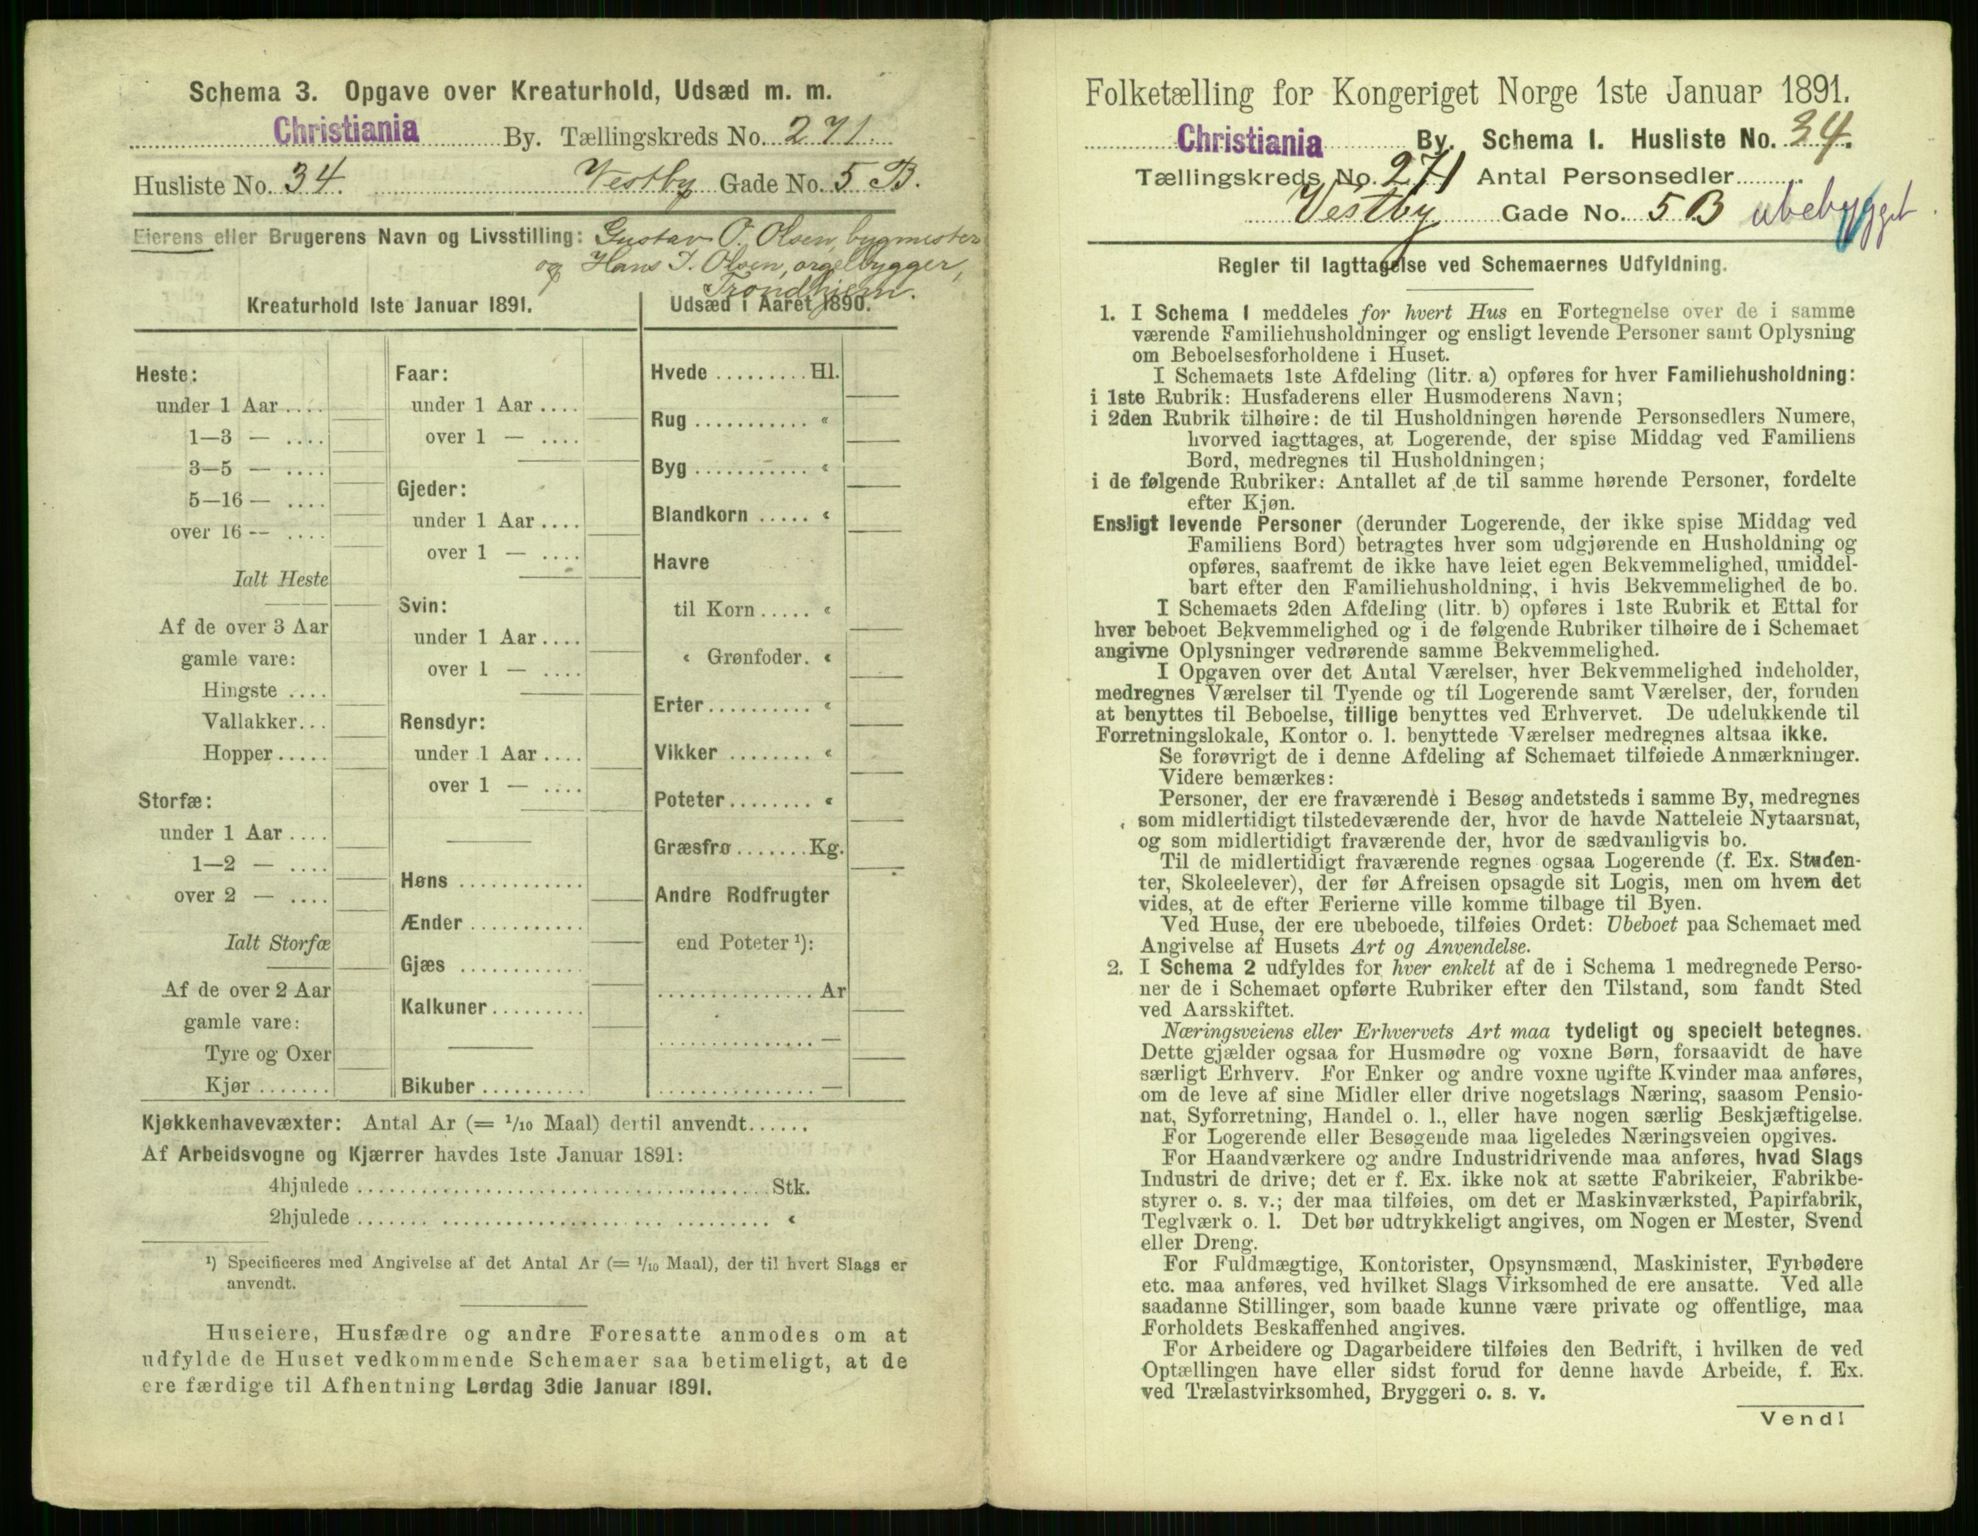 Schema 3. Opgave over Kreaturhold, Udsæd m. m.
Christiania By. Tællingskreds No. 271.
Husliste No. 34. Vestby Gade No. 5 B.
Eierens eller Brugerens Navn og Livsstilling: Gustav O. Olsen, bygmester
og Hans J. Olsen, orgelbygger,
Trondhjem.
Kreaturhold 1ste Januar 1891.
Heste:
under 1 Aar ....
1—3 — ....
3—5 — ....
5—16 — ....
over 16 — ....
Ialt Heste
Af de over 3 Aar
gamle vare:
Hingste ....
Vallakker...
Hopper.....
Storfæ:
under 1 Aar ....
1—2 — ....
over 2 — ....
Ialt Storfæ
Af de over 2 Aar
gamle vare:
Tyre og Oxer
Kjør .......
Faar:
under 1 Aar ....
over 1 — ....
Gjeder:
under 1 Aar ....
over 1 — ....
Svin:
under 1 Aar ....
over 1 — ....
Rensdyr:
under 1 Aar ....
over 1 — ....
Høns ............
Ænder ...........
Gjæs ............
Kalkuner.........
Bikuber ..........
Udsæd i Aaret 1890.
Hvede ......... Hl.
Rug ........... «
Byg ........... «
Blandkorn ..... «
Havre
til Korn ..... «
« Grønfoder. «
Erter.......... «
Vikker ........ «
Poteter........ «
Græsfrø ....... Kg.
Andre Rodfrugter
end Poteter ¹):
............... Ar
............... —
............... —
Kjøkkenhavevæxter: Antal Ar (= 1/10 Maal) dertil anvendt......
Af Arbeidsvogne og Kjærrer havdes 1ste Januar 1891:
4hjulede ....................................... Stk.
2hjulede ....................................... «
¹) Specificeres med Angivelse af det Antal Ar (= 1/10 Maal), der til hvert Slags er
anvendt.
Huseiere, Husfædre og andre Foresatte anmodes om at
udfylde de Huset vedkommende Schemaer saa betimeligt, at de
ere færdige til Afhentning Lørdag 3die Januar 1891.
Folketælling for Kongeriget Norge 1ste Januar 1891.
Christiania By. Schema 1. Husliste No. 34.
Tællingskreds No. 271 Antal Personsedler..........
Vestby Gade No. 5 B ubebygget
Regler til Iagttagelse ved Schemaernes Udfyldning.
1. I Schema 1 meddeles for hvert Hus en Fortegnelse over de i samme
værende Familiehusholdninger og ensligt levende Personer samt Oplysning
om Beboelsesforholdene i Huset.
I Schemaets 1ste Afdeling (litr. a) opføres for hver Familiehusholdning:
i 1ste Rubrik: Husfaderens eller Husmoderens Navn;
i 2den Rubrik tilhøire: de til Husholdningen hørende Personsedlers Numere,
hvorved iagttages, at Logerende, der spise Middag ved Familiens
Bord, medregnes til Husholdningen;
i de følgende Rubriker: Antallet af de til samme hørende Personer, fordelte
efter Kjøn.
Ensligt levende Personer (derunder Logerende, der ikke spise Middag ved
Familiens Bord) betragtes hver som udgjørende en Husholdning og
opføres, saafremt de ikke have leiet egen Bekvemmelighed, umiddel-
bart efter den Familiehusholdning, i hvis Bekvemmelighed de bo.
I Schemaets 2den Afdeling (litr. b) opføres i 1ste Rubrik et Ettal for
hver beboet Bekvemmelighed og i de følgende Rubriker tilhøire de i Schemaet
angivne Oplysninger vedrørende samme Bekvemmelighed.
I Opgaven over det Antal Værelser, hver Bekvemmelighed indeholder,
medregnes Værelser til Tyende og til Logerende samt Værelser, der, foruden
at benyttes til Beboelse, tillige benyttes ved Erhvervet. De udelukkende til
Forretningslokale, Kontor o. l. benyttede Værelser medregnes altsaa ikke.
Se forøvrigt de i denne Afdeling af Schemaet tilføiede Anmærkninger.
Videre bemærkes:
Personer, der ere fraværende i Besøg andetsteds i samme By, medregnes
som midlertidigt tilstedeværende der, hvor de havde Natteleie Nytaarsnat,
og som midlertidigt fraværende der, hvor de sædvanligvis bo.
Til de midlertidigt fraværende regnes ogsaa Logerende (f. Ex. Studen-
ter, Skoleelever), der før Afreisen opsagde sit Logis, men om hvem det
vides, at de efter Ferierne ville komme tilbage til Byen.
Ved Huse, der ere ubeboede, tilføies Ordet: Ubeboet paa Schemaet med
Angivelse af Husets Art og Anvendelse.
2. I Schema 2 udfyldes for hver enkelt af de i Schema 1 medregnede Perso-
ner de i Schemaet opførte Rubriker efter den Tilstand, som fandt Sted
ved Aarsskiftet.
Næringsveiens eller Erhvervets Art maa tydeligt og specielt betegnes.
Dette gjælder ogsaa for Husmødre og voxne Børn, forsaavidt de have
særligt Erhverv. For Enker og andre voxne ugifte Kvinder maa anføres,
om de leve af sine Midler eller drive nogetslags Næring, saasom Pensio-
nat, Syforretning, Handel o. l., eller have nogen særlig Beskjæftigelse.
For Logerende eller Besøgende maa ligeledes Næringsveien opgives.
For Haandværkere og andre Industridrivende maa anføres, hvad Slags
Industri de drive; det er f. Ex. ikke nok at sætte Fabrikeier, Fabrikbe-
styrer o. s. v.; der maa tilføies, om det er Maskinværksted, Papirfabrik,
Teglværk o. l. Det bør udtrykkeligt angives, om Nogen er Mester, Svend
eller Dreng.
For Fuldmægtige, Kontorister, Opsynsmænd, Maskinister, Fyrbødere
etc. maa anføres, ved hvilket Slags Virksomhed de ere ansatte. Ved alle
saadanne Stillinger, som baade kunne være private og offentlige, maa
Forholdets Beskaffenhed angives.
For Arbeidere og Dagarbeidere tilføies den Bedrift, i hvilken de ved
Optællingen have eller sidst forud for denne havde Arbeide, f. Ex.
ved Trælastvirksomhed, Bryggeri o. s. v.
Vend!